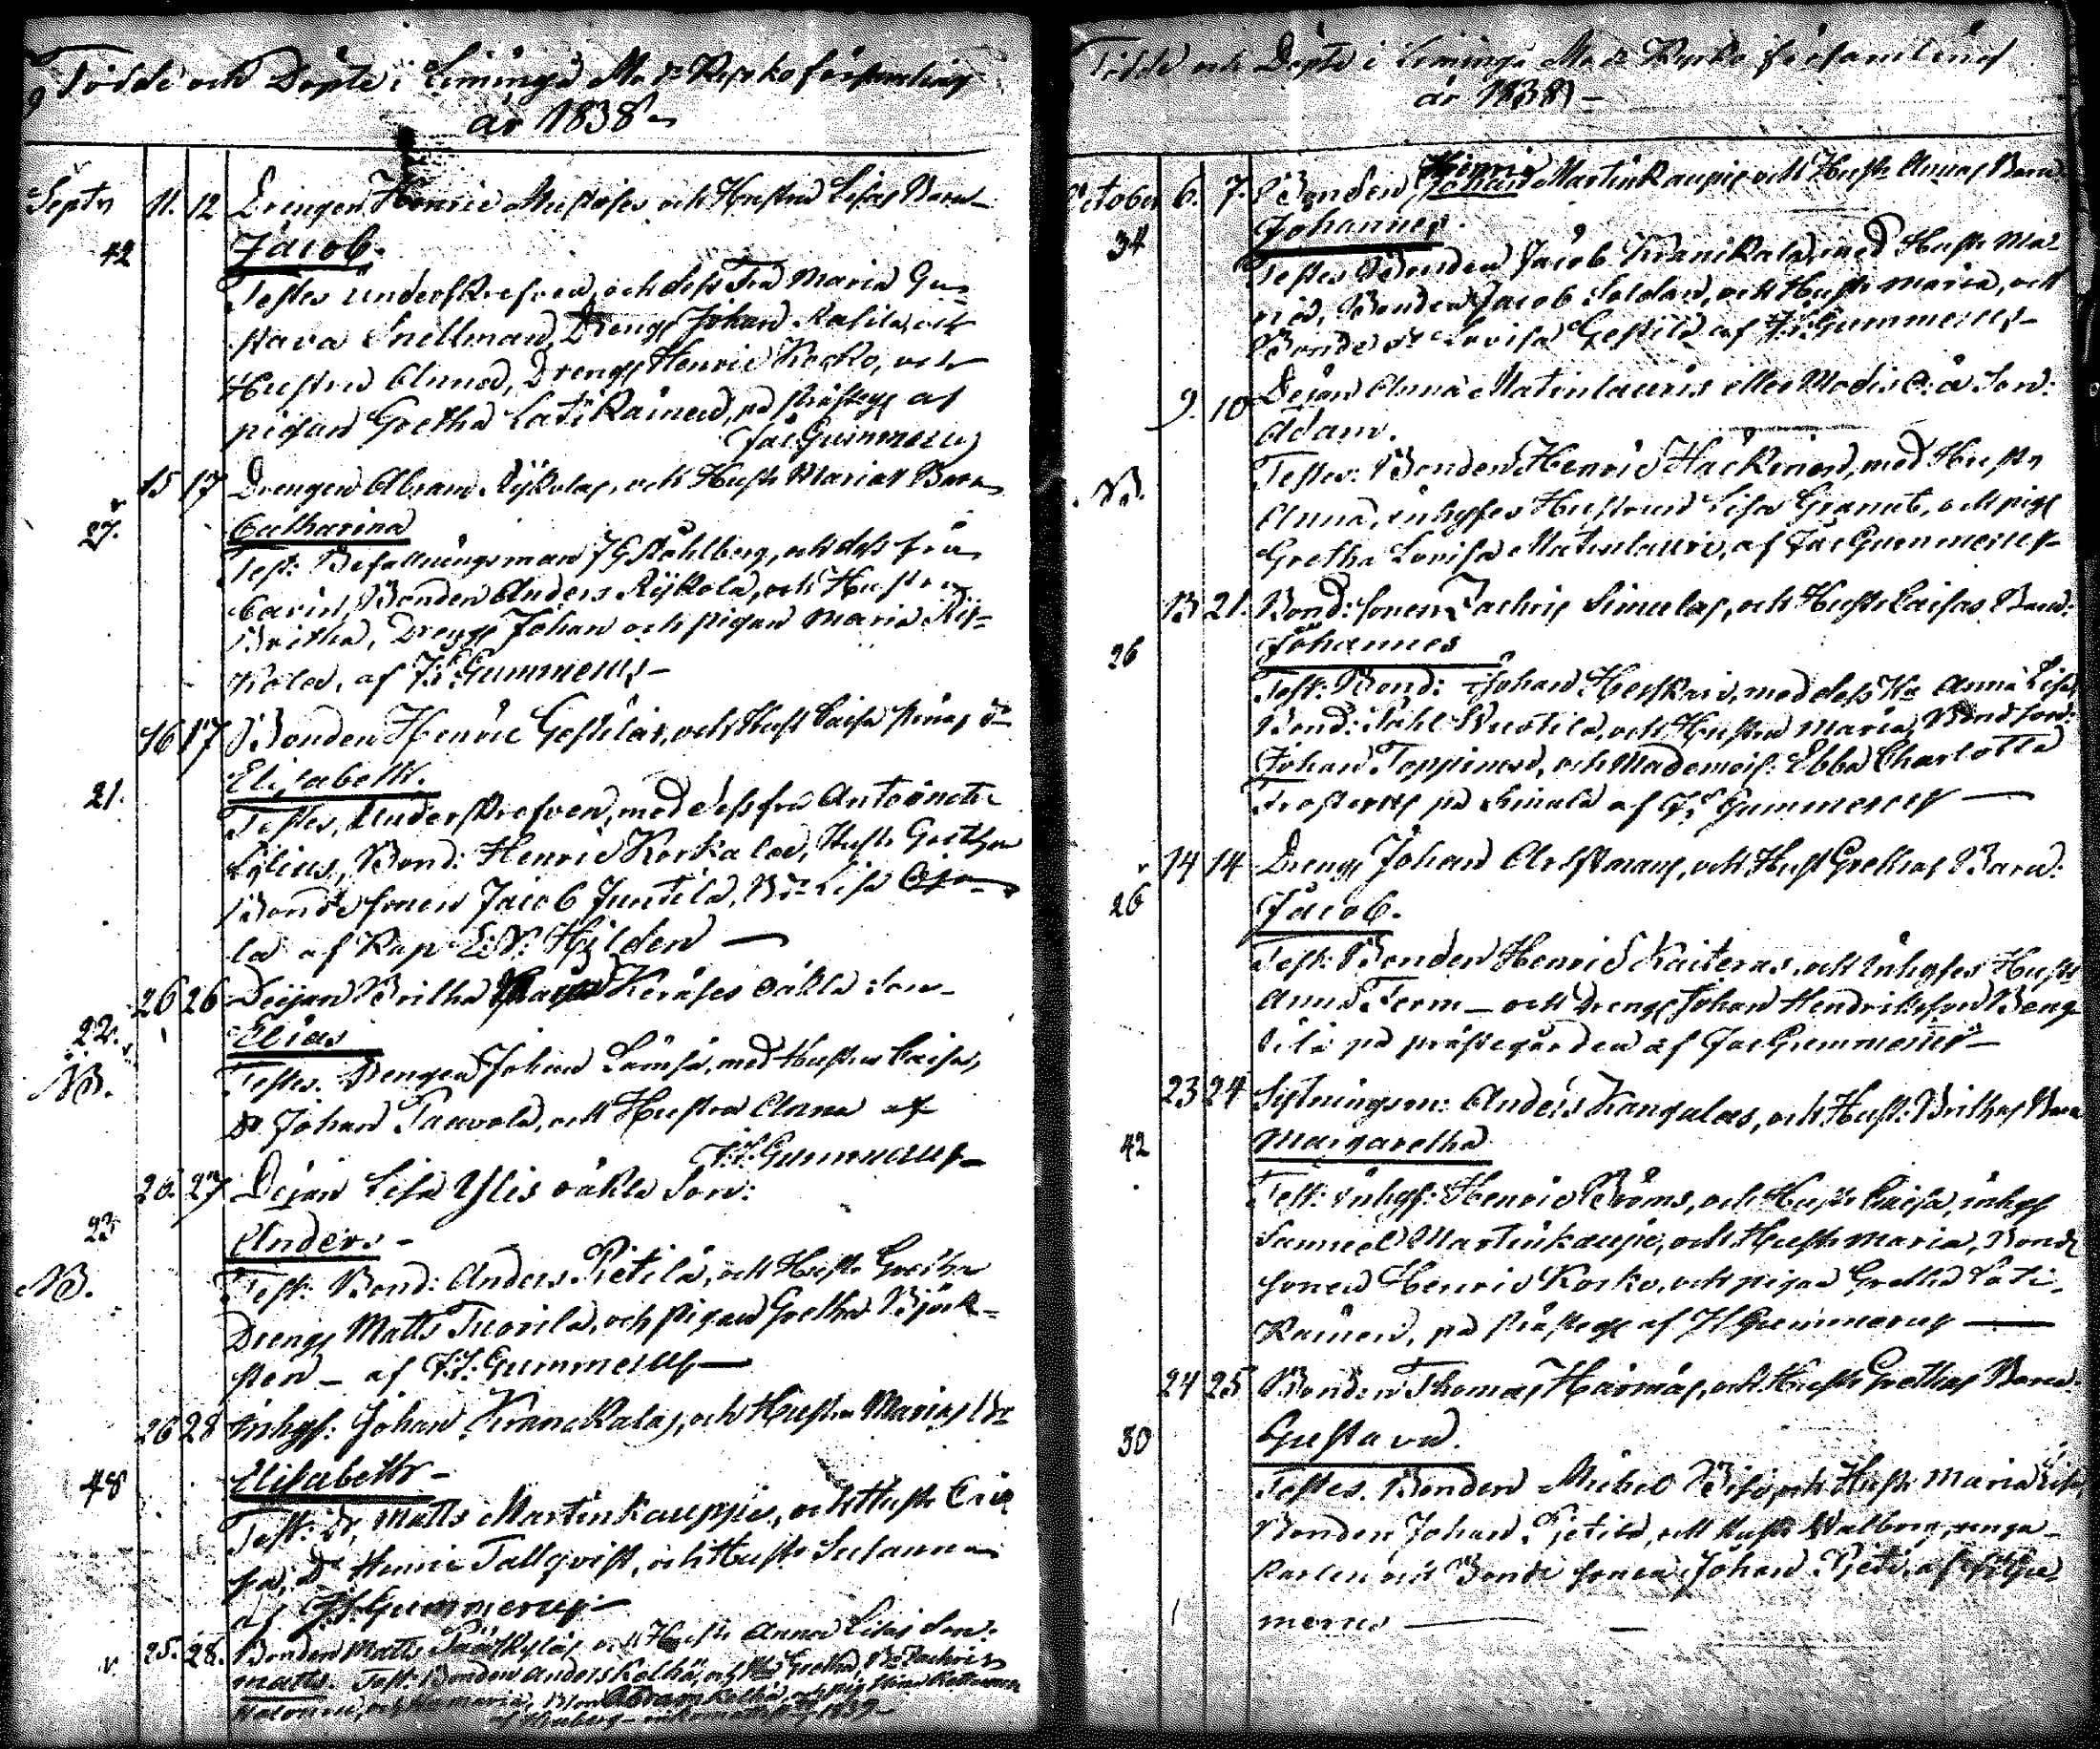 Födde och Döpte i Limingo Moder Kyrkoförsamling
år 1838
Septr 11. 12 Drengen Henric Mustoses och Hustru Lisas Barn
42 Jacob.
Testes underskrefven, och dess Fru Maria Gus-
stava Snellman, Dreng Johan Kasila och
Hustru Anna, Dreng Henric Kocko, och
pigan Gretha Latikainen, på Prästeg af
Jac Gummerus
15 17 Drengen Abram Rykolas, och Hustr Marias Barn
27. Catharina
Test: Befallningsman J G Ståhlberg, och dess fru
Carin, Bonden Anders Rykola, och Hustru
Britha, Dreng Johan och pigan Maria Ry-
kola, af J: Gummerus
16 17 Bonden Henric Gestilas, och Hust Caisa Stinas dr
21. Elisabeth.
Testes, Underskrefven, med dess fru Antoinette
Lilius, Bond: Henric Korkala, Hustr Gretha
Bondesonen Jacob Juntila, Lisa
la af Kap E: N: Hylden
26 26 Deijan Britha Keräses oäkta Son
22. Elias
NB. Testes. Drengen Johan Lämsä, med Hustru Caisa,
Dr Johan Pauvola, och Hustru Anna af
J: J: Gummerus
26. 27 Dejan Lisa Ylis oäkta Son:
23 Anders
NB. Test: Bond: Anders Pietilä, och Hustr Gretha
Dreng Matts Tuorila, och pigan Gretha Björk-
sten af J: J: Gummerus
26 28 Inhys: Johan Kranckalas, och Hustru Marias Br
48 Elisabeth
Test: Dr Matts Martinkauppis, och Hustr Cai
sa, Dr Henric Tallqvist, och Hustr Susanna
af J: J: Gummerus
v. 25. 28. Bonden Matts och Hustr Anna Lisas Son:
Matts. Test: Bonden Anders Kolhä, och Gretha,
Maria, Abram
1839
Födde och Döpte i Limingo Moder Kyrko församling
år 1838
October 6. 7. Bonden Henric Johan Martinkaupis och Hustr Annas Barn
34 Johannes.
Testes Bonden Jacob Kranikala, med Hustr Ma-
ria, Bonden Jacob Soldan, och Hustr Maria, och
Bonde Lovisa Gestila af J: J: Gummerus
9. 10 Dejan Anna Matinlauris eller Modis o: ä Son:
Adam.
NB. Testes: Bonden Henric Häckinen, med Hustr
Anna, inhyses Hustrun Lisa Granut, och pig
Gretha Lovisa Matinlauri, af Jac Gummerus
13 21. Bond: sonen Zachris Simulas, och Hustr Caisas Barn:
26 Johannes
Test: Bond: Johan Heiskari, med dess Hu Anna Lisa
Bond: Påhl Wuotila, och Hustru Maria, Bondson:
Johan Toppinen, och Mademois: Ebba Charlotta
Frosterus på Simula af J: Gummerus
14 14 Dreng Johan Arhsmans, och Hust Grethas Barn:
26 Jacob.
Test: Bonden Henric Kaiteras, och Inhyses Hustr
Anna Ferm och Dreng Johan Hendriksson Beng
tila på prästegården af Jac Gummerus
23 24 Sytningsm: Anders Kangalas, och Hust: Brithas Barn
42 Margaretha
Test: Inhys: Henric Bröms, och Hustr Caisa, inhys
Samuel Martinkaupi, och Hustr Maria, Bonde
sonen Henric Kocko, och pigan Gretha Lati-
kainen, på Prästeg af J J Gummerus
24 25 Bonden Thomas Härmäs, och Hustr Grethas Barn
30 Gustava.
Testes. Bonden Michel och Hustr Maria Lisa
Bonden Johan Pietilä, och Hustr Walborg, unga
karlen och Bonde sonen Johan af J J Gu-
merus